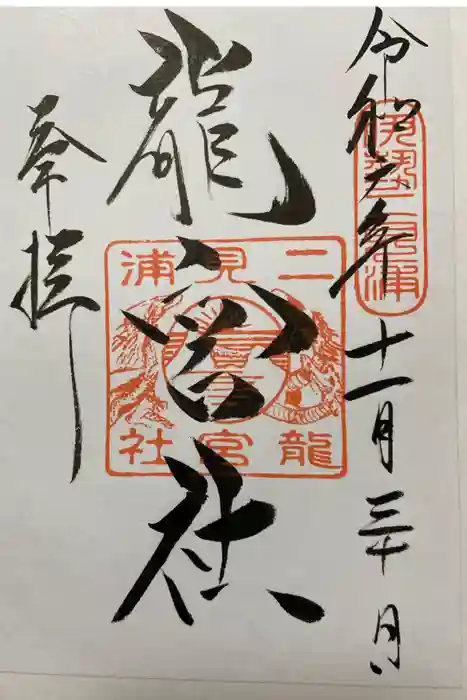 令和六年十一月三十日
伊勢二見浦
龍宮社
二見浦
龍宮社
奉拝